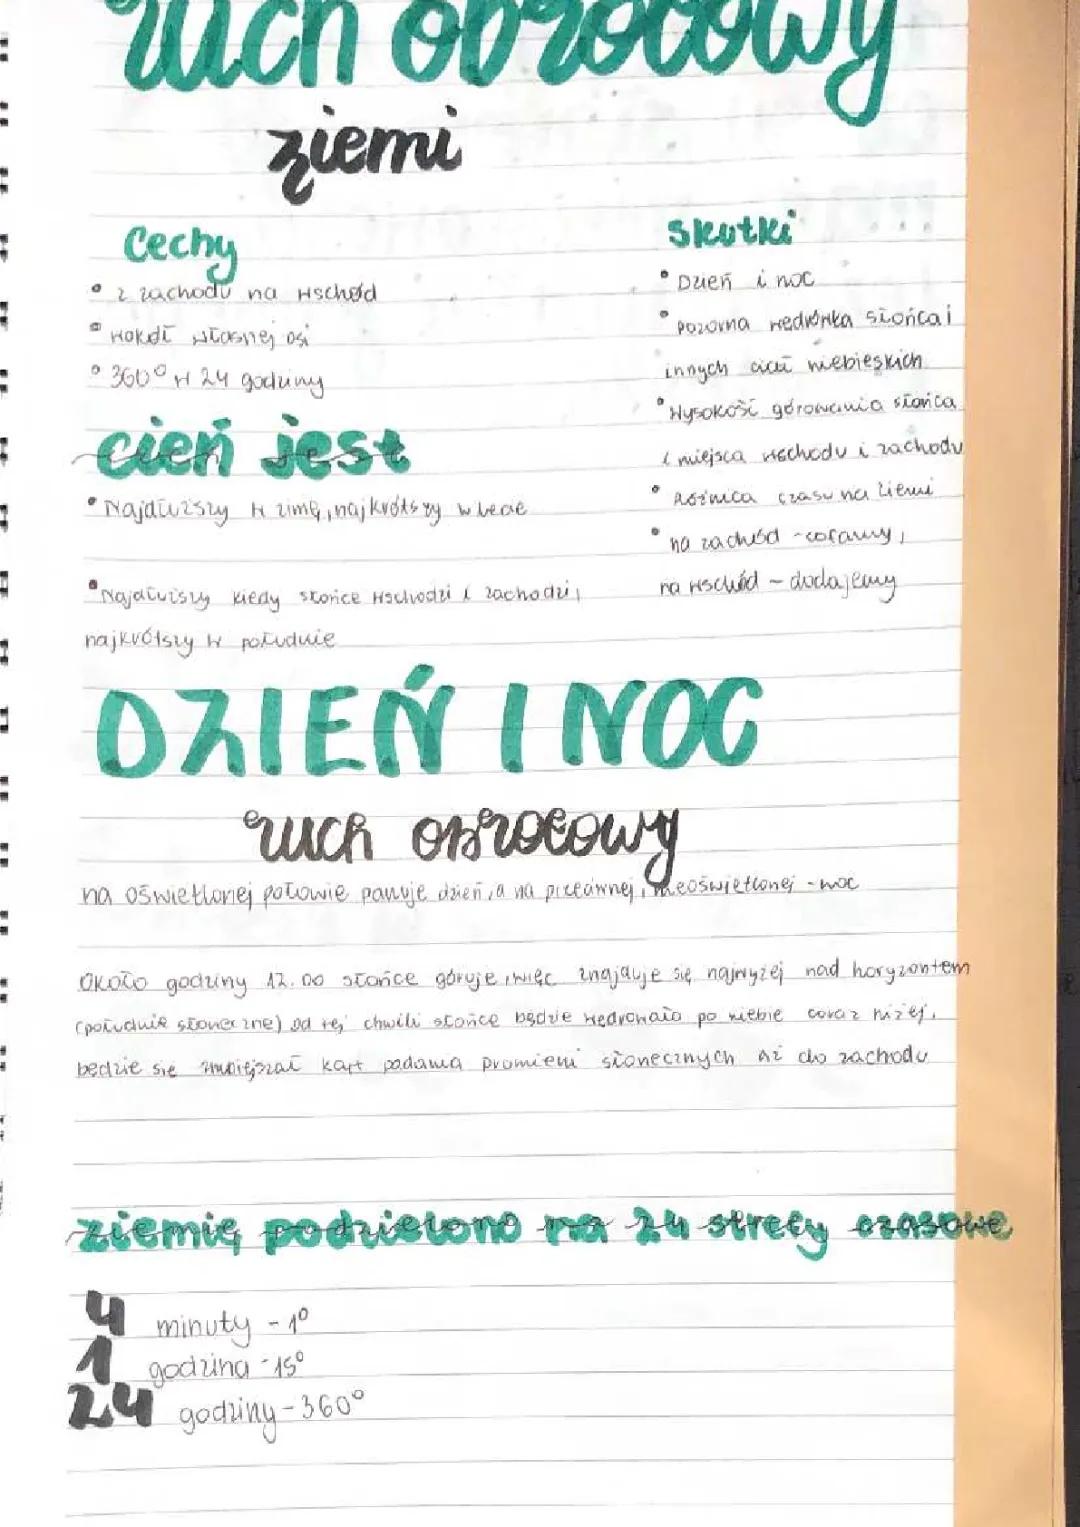 ruch obrotowy
ziemi
Cechy
• z zachodu na wschód
• wokół własnej osi
• 360° w 24 godziny
cień jest
• Najdłuższy w zimę, najkrótszy w lecie
• Najdłuższy kiedy słońce wschodzi i zachodzi,
najkrótszy w południe
Skutki
• Dzień i noc
• pozorna wędrówka słońca i
innych ciał niebieskich
• Wysokość górowania słońca
i miejsca wschodu i zachodu
• Różnica czasu na ziemi
• na zachód - cofamy,
na wschód - dodajemy
DZIEŃ I NOC
ruch obrotowy
na oświetlonej połowie panuje dzień, a na przeciwnej, nieoświetlonej - noc
Około godziny 12.00 słońce góruje, więc znajduje się najwyżej nad horyzontem
(południe słoneczne) od tej chwili słońce będzie wędrowało po niebie coraz niżej.
będzie się zmniejszał kąt padania promieni słonecznych aż do zachodu
ziemię podzielono na 24 strefy czasowe
4 minuty - 1°
1 godzina - 15°
24 godziny - 360°